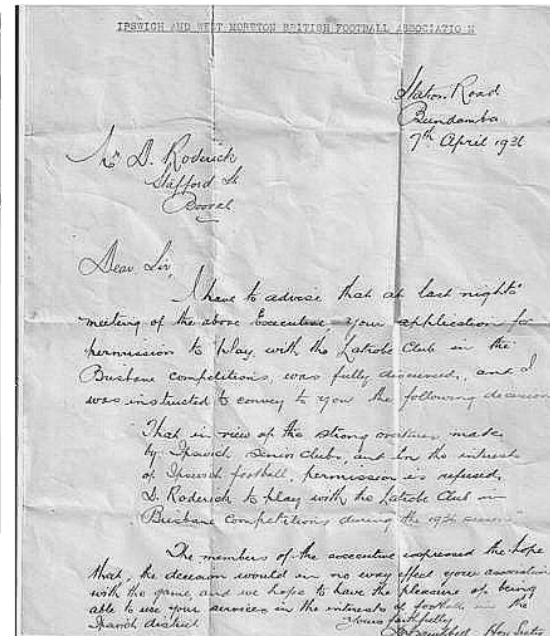 IPSWICH AND WEST MORETON BRITISH FOOTBALL ASSOCIATION
Station Road
Bundamba
7th April 1936
Mr D. Roderick
Stafford St
Booval
Dear Sir,
I have to advise that at last nights'
meeting of the above Executive, your application for
permission to play with the Latrobe Club in the
Brisbane competitions, was fully discussed, and I
was instructed to convey to you the following decision
That in view of the strong overtures made
by Ipswich Senior clubs, and in the interests
of Ipswich football, permission is refused,
D. Roderick to play with the Latrobe Club in
Brisbane Competitions during the 1936 season"
The members of the executive expressed the hope
that, the decision would in no way effect your association
with the game, and we hope to have the pleasure of being
able to use your services in the interests of football in the
Ipswich district.
Yours faithfully
Hon. Secty